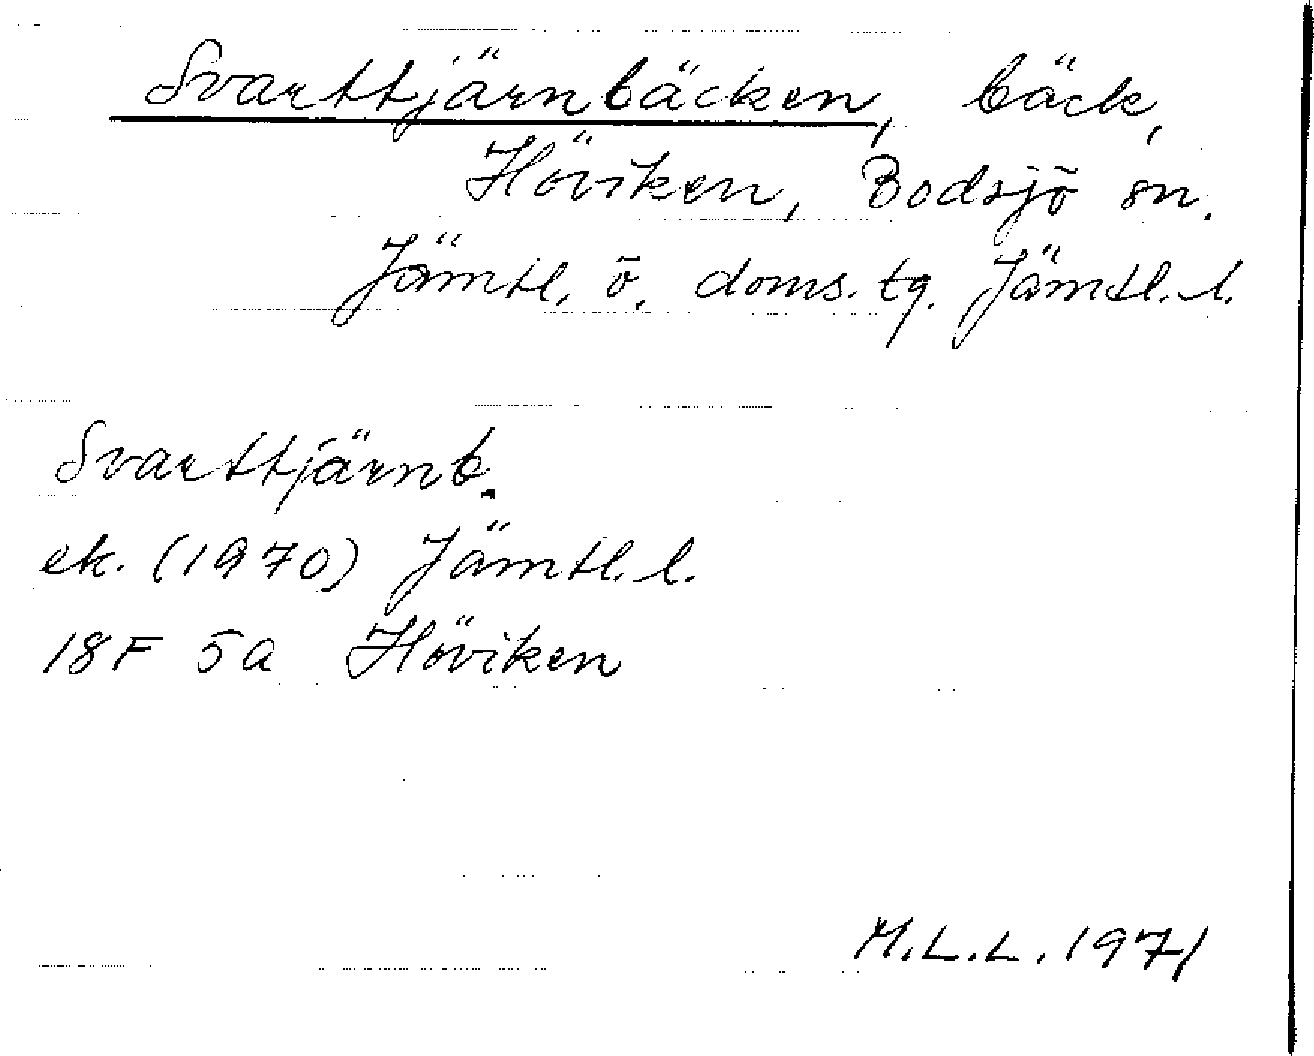 Svarttjärnbäcken, bäck,
Höviken, Bodsjö sn.
Jämtl. ö. doms. tg. Jämtl. l.
Svarttjärnb.
ek. (1970) Jämtl. l.
18F 5a Höviken
M.L.L. 1971